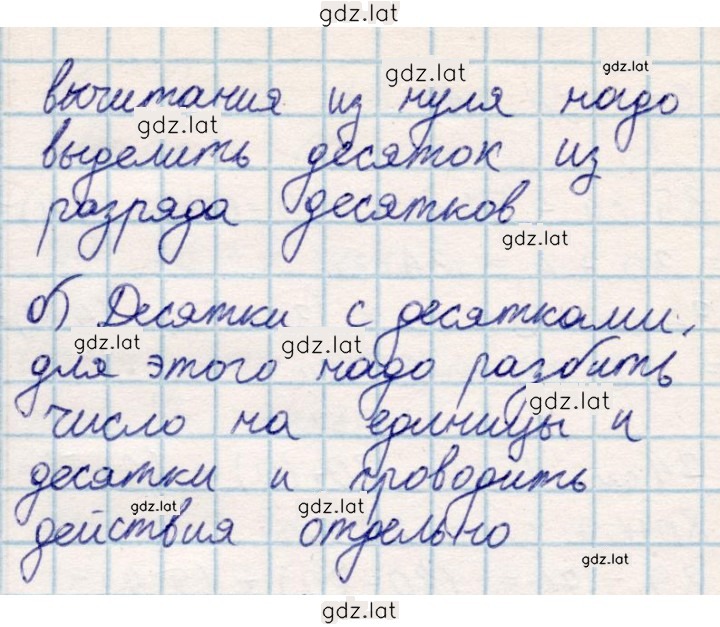 gdz.lat
gdz.lat gdz.lat
вычитания из нуля надо
gdz.lat
выделить десяток из
разряда десятков
gdz.lat
б) Десятки с десятками,
gdz.lat gdz.lat
для этого надо разбить
gdz.lat
число на единицы и
десятки и проводить
gdz.lat gdz.lat
действия отдельно
gdz.lat
gdz.lat